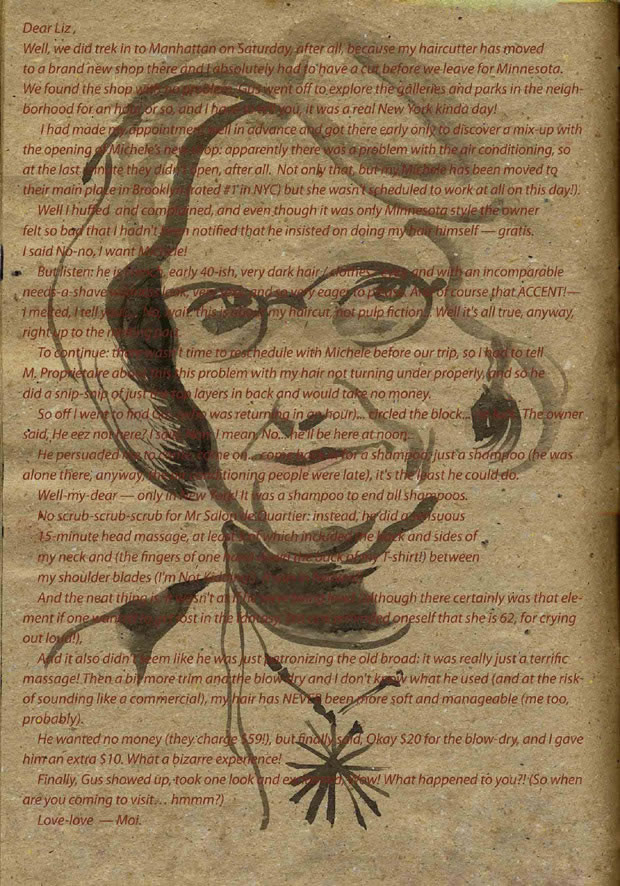 Dear Liz,
Well, we did trek in to Manhattan on Saturday, after all, because my haircutter has moved
to a brand new shop there and I absolutely had to have a cut before we leave for Minnesota.
We found the shop with no problem. Gus went off to explore the galleries and parks in the neigh-
borhood for an hour or so, and I have to tell you, it was a real New York kinda day!
I had made my appointment well in advance and got there early only to discover a mix-up with
the opening of Michele's new shop: apparently there was a problem with the air conditioning, so
at the last minute they didn't open, after all. Not only that, but my Michele has been moved to
their main place in Brooklyn (rated #1 in NYC) but she wasn't scheduled to work at all on this day!).
Well I huffed and complained, and even though it was only Minnesota style the owner
felt so bad that I hadn't been notified that he insisted on doing my hair himself — gratis.
I said No-no, I want Michele!
But listen: he is French, early 40-ish, very dark hair / clothes / eyes, and with an incomparable
needs-a-shave look, very and so very eager to please. And of course that ACCENT!—
I melted, I tell you. No, wait: this is about my haircut, not pulp fiction. Well it's all true, anyway,
right up to the melting part.
To continue: there wasn't time to reschedule with Michele before our trip, so I had to tell
M, Proprietaire about this problem with my hair not turning under properly, and so he
did a snip-snip of just the top layers in back and would take no money.
So off I went to find Gus (who was returning in an hour)... circled the block... The owner
said, He eez not here? I said, Non, I mean, No... he'll be here at noon.
He persuaded me to come on for a shampoo, just a shampoo (he was
alone there, anyway, the air conditioning people were late), it's the least he could do.
Well-my-dear — only in New York! It was a shampoo to end all shampoos.
No scrub-scrub-scrub for Mr Salon de Quartier: instead, he did a sensuous
15-minute head massage, at least, and which included the back and sides of
my neck and (the fingers of one hand down the back of my T-shirt!) between
my shoulder blades (I'm Not Kidding
And the neat thing is it wasn't at all although there certainly was that ele-
ment if one wanted to get lost in the fantasy, but one reminded oneself that she is 62, for crying
out loud!),
And it also didn't seem like he was just patronizing the old broad: it was really just a terrific
massage! Then a bit more trim and the blow-dry and I don't know what he used (and at the risk-
of sounding like a commercial), my hair has NEVER been more soft and manageable (me too,
probably).
He wanted no money (they charge $59!), but finally said, Okay $20 for the blow-dry, and I gave
him an extra $10. What a bizarre experience!
Finally, Gus showed up, took one look and exclaimed, Wow! What happened to you?! (So when
are you coming to visit… hmmm?)
Love-love — Moi.